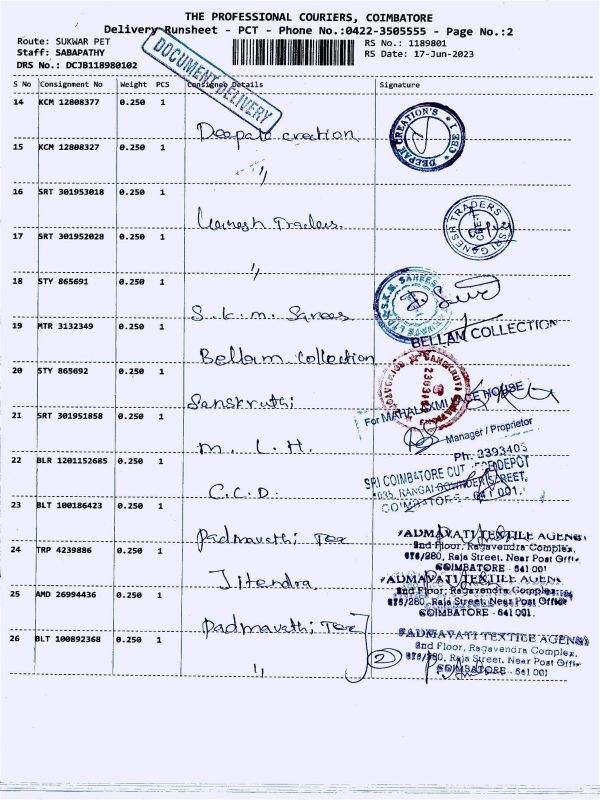 THE PROFESSIONAL COURIERS, COIMBATORE
Delivery Runsheet - PCT - Phone No.:0422-3505555 - Page No.:2
Route: SUKWAR PET
RS No.: 1189801
Staff: SABAPATHY
RS Date: 17-Jun-2023
DRS No.: DCJB118980102
DOCUMENT DELIVERY
S No Consignment No Weight PCS Consignee Details Signature
14 KCM 12808377 0.250 1
Deepak creation
DEEPAK CREATION'S CBE 1
15 KCM 12808327 0.250 1
"
16 SRT 301953018 0.250 1
Ganesh Traders.
SRI GANESH TRADERS
17 SRT 301952028 0.250 1
"
18 STY 865691 0.250 1
S. k. m. Sarees
S.K.M. SAREES PRIVATE LTD
19 MTR 3132349 0.250 1
Bellam Collection
BELLAM COLLECTION
20 STY 865692 0.250 1
Sanskruthi
SANSKRUTI
21 SRT 301951858 0.250 1
M. L. H.
For MAHALAXMI LACE HOUSE
Manager / Proprietor
22 BLR 1201152685 0.250 1
C. C. D.
Ph: 2393403
SRI COIMBATORE CUT PIECE DEPOT
RANGAI GOWNDER STREET,
COIMBATORE - 641 001.
23 BLT 100186423 0.250 1
Padmavathi Tex
PADMAVATI TEXTILE AGENCY
2nd Floor, Ragavendra Complex,
Raja Street, Near Post Office
COIMBATORE - 641 001
24 TRP 4239886 0.250 1
Jitendra.
PADMAVATI TEXTILE AGENCY
2nd Floor, Ragavendra Complex,
Raja Street, Near Post Office
COIMBATORE - 641 001.
25 AMD 26994436 0.250 1
Padmavathi Tex
26 BLT 100892368 0.250 1
"
2
PADMAVATI TEXTILE AGENCY
2nd Floor, Ragavendra Complex,
Raja Street, Near Post Office
COIMBATORE - 641 001